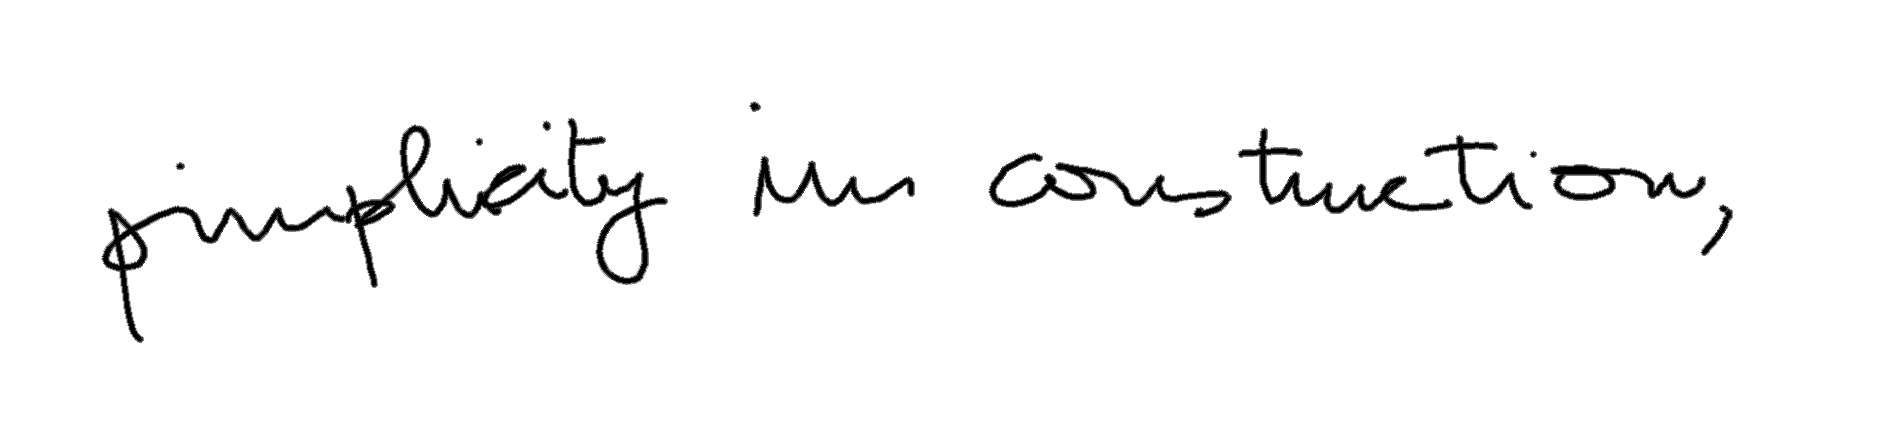 simplicity in construction,